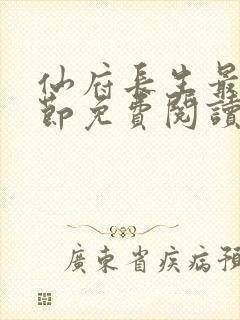 仙府長生最
節免費閱讀
廣東省疾病預